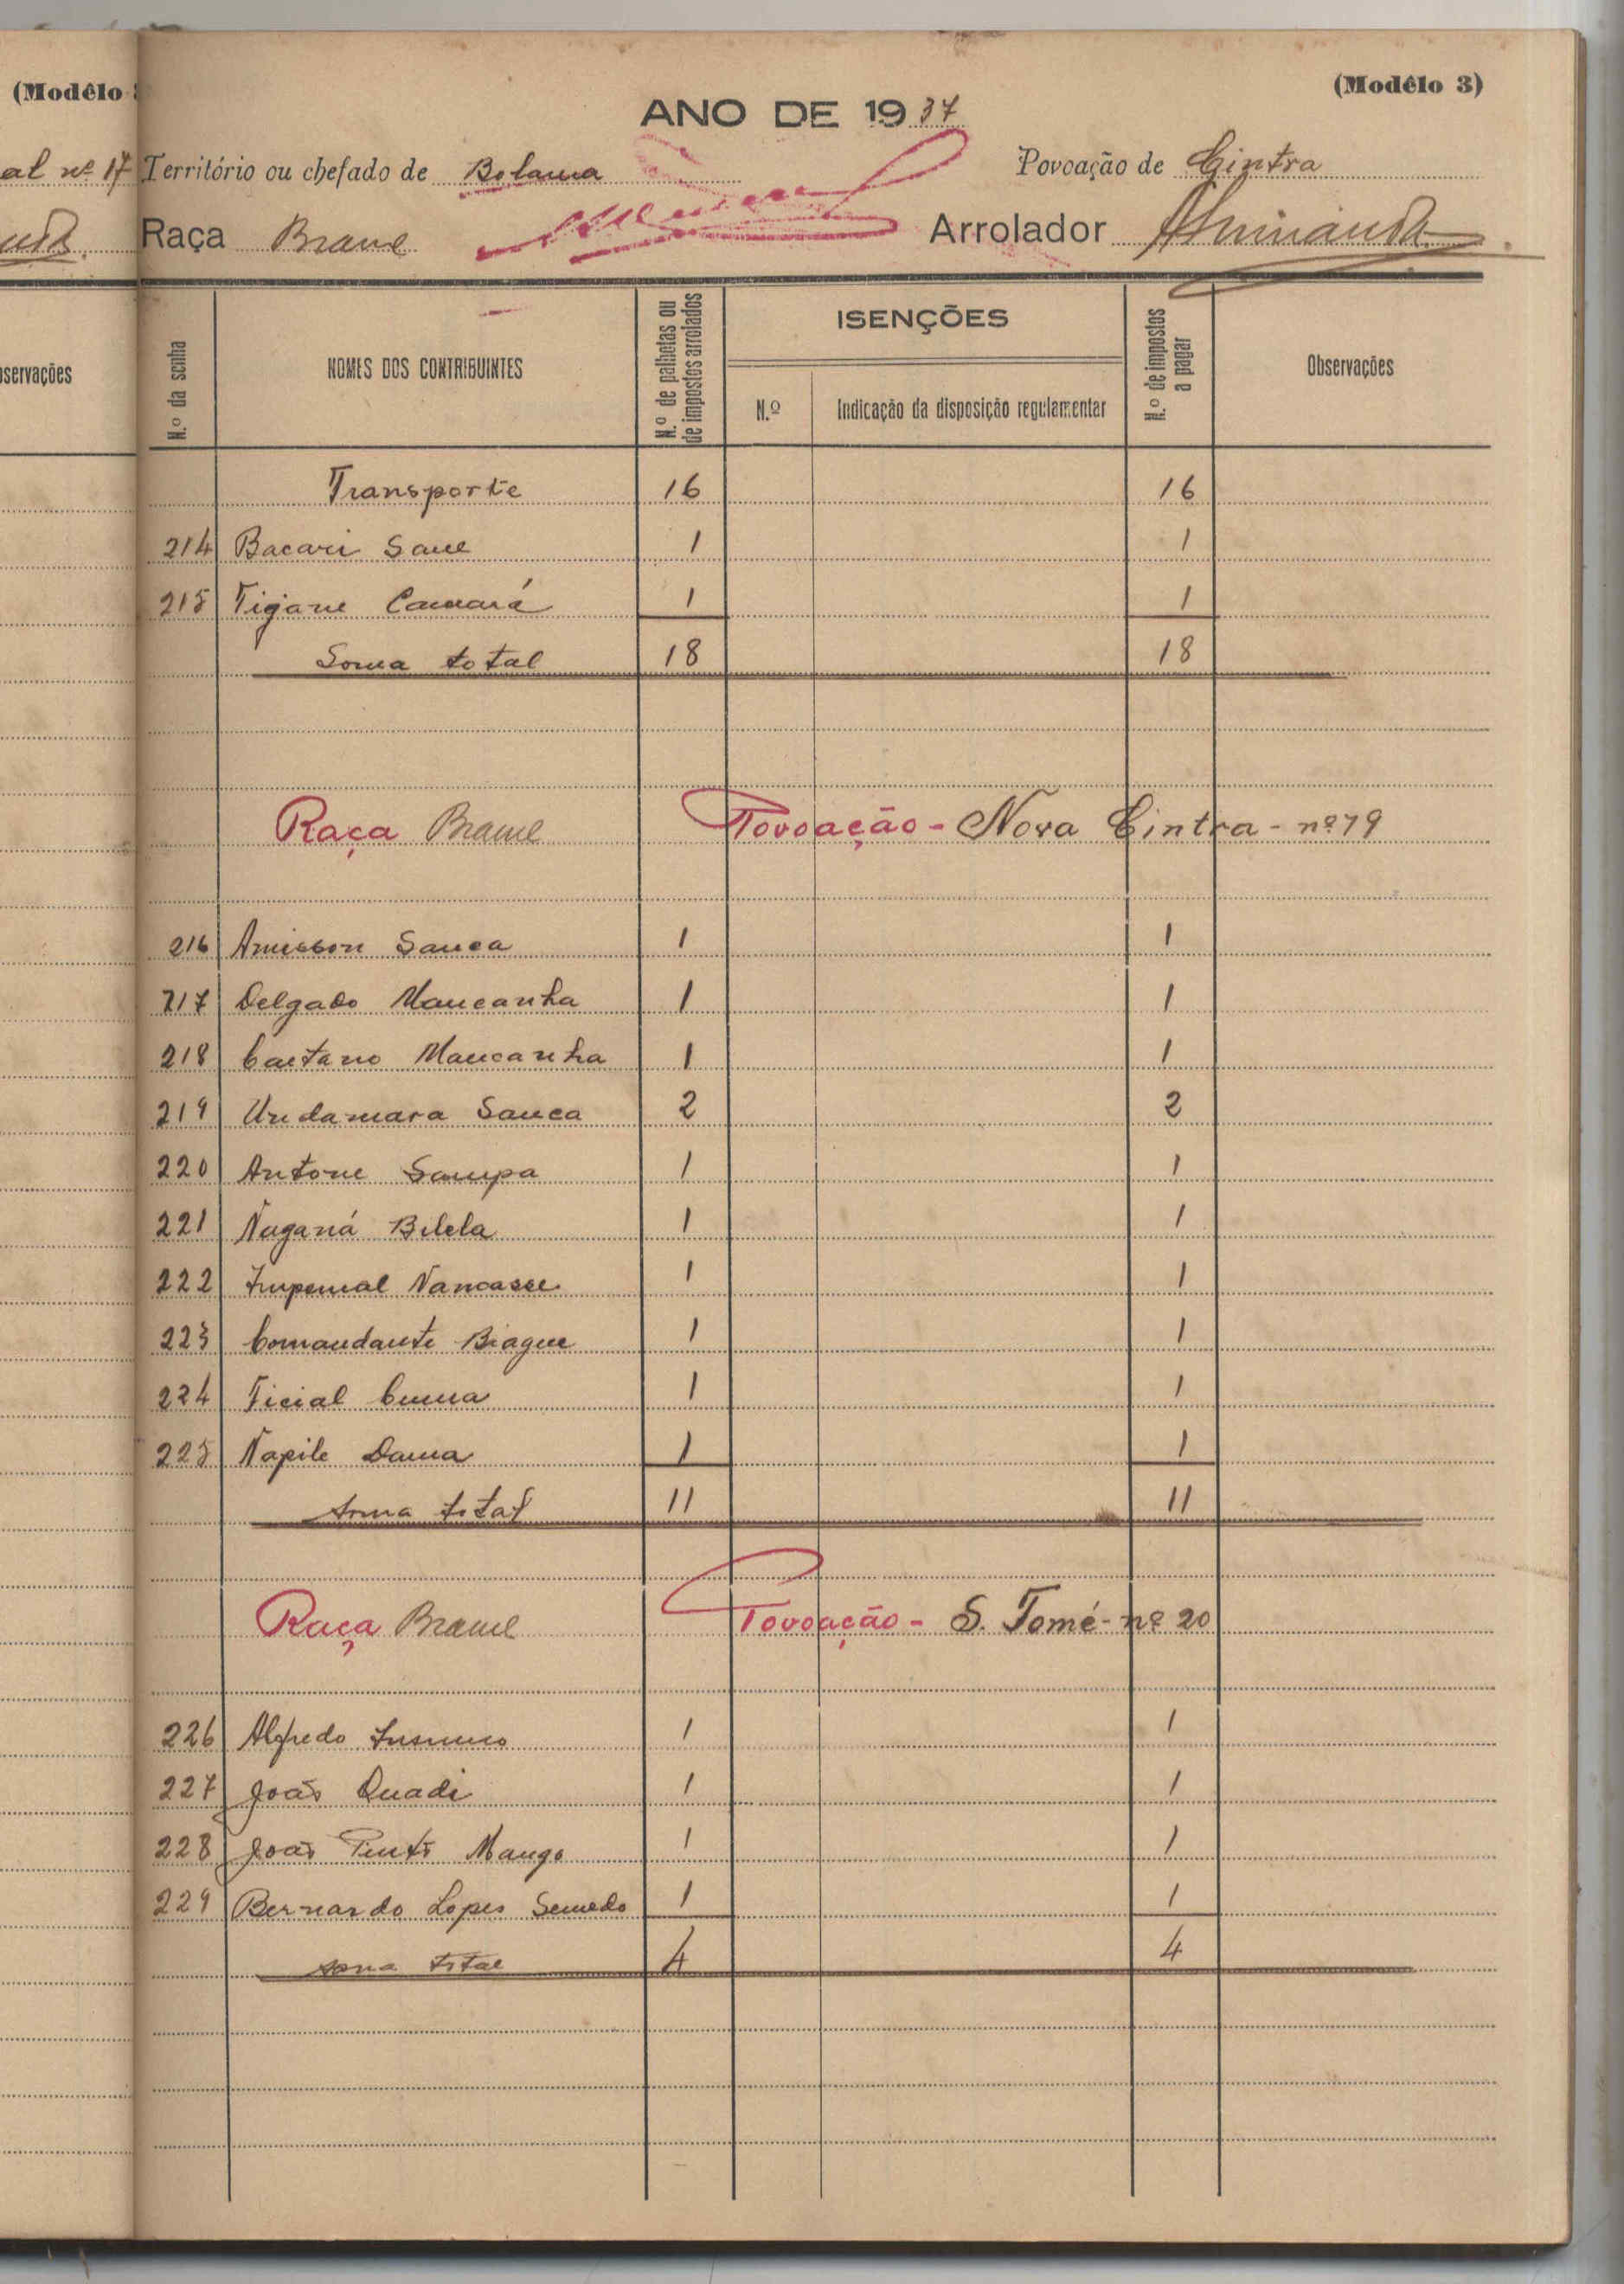 (Modêlo
al nº 17
servações
(Modêlo 3)
ANO DE 1937
Território ou chefado de Bolama Povoação de Cintra
Raça Brame Arrolador
N.º da senha
NOMES DOS CONTRIBUINTES
N.º de palhotas ou de impostos arrolados
ISENÇÕES
N.º
Indicação da disposição regulamentar
N.º de impostos a pagar
Observações
Transporte 16 16
214 Bacari Sane 1 1
215 Tigane Camará 1 1
Soma total 18 18
Raça Brame Povoação - Nova Cintra - nº 19
216 Amisson Sanca 1 1
217 Delgado Mancanha 1 1
218 Caetano Mancanha 1 1
219 Undamara Sanca 2 2
220 Antone Sampa 1 1
221 Naganá Bilela 1 1
222 Imperial Nancasse 1 1
223 Comandante Biague 1 1
224 Ticial 1 1
225 Napile Dama 1 1
Soma total 11 11
Raça Brame Povoação - S. Tomé - nº 20
226 Alfredo 1 1
227 João Quadi 1 1
228 João Pinto Mango 1 1
229 Bernardo Lopes Semedo 1 1
soma total 4 4